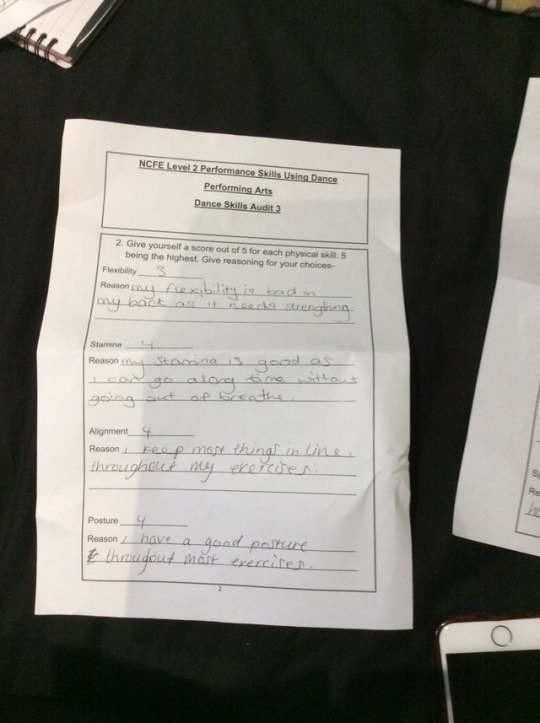 NCFE Level 2 Performance Skills Using Dance
Performing Arts
Dance Skills Audit 3
2. Give yourself a score out of 5 for each physical skill. 5
being the highest. Give reasoning for your choices-
Flexibility 3
Reason my flexibility is bad in
my back as it needs strengthing
Stamina 4
Reason my stamina is good as
i can go along time without
going out of breathe.
Alignment 4
Reason i keep most things in line.
throughout my exercises.
Posture 4
Reason i have a good posture
throughout most exercises.
2